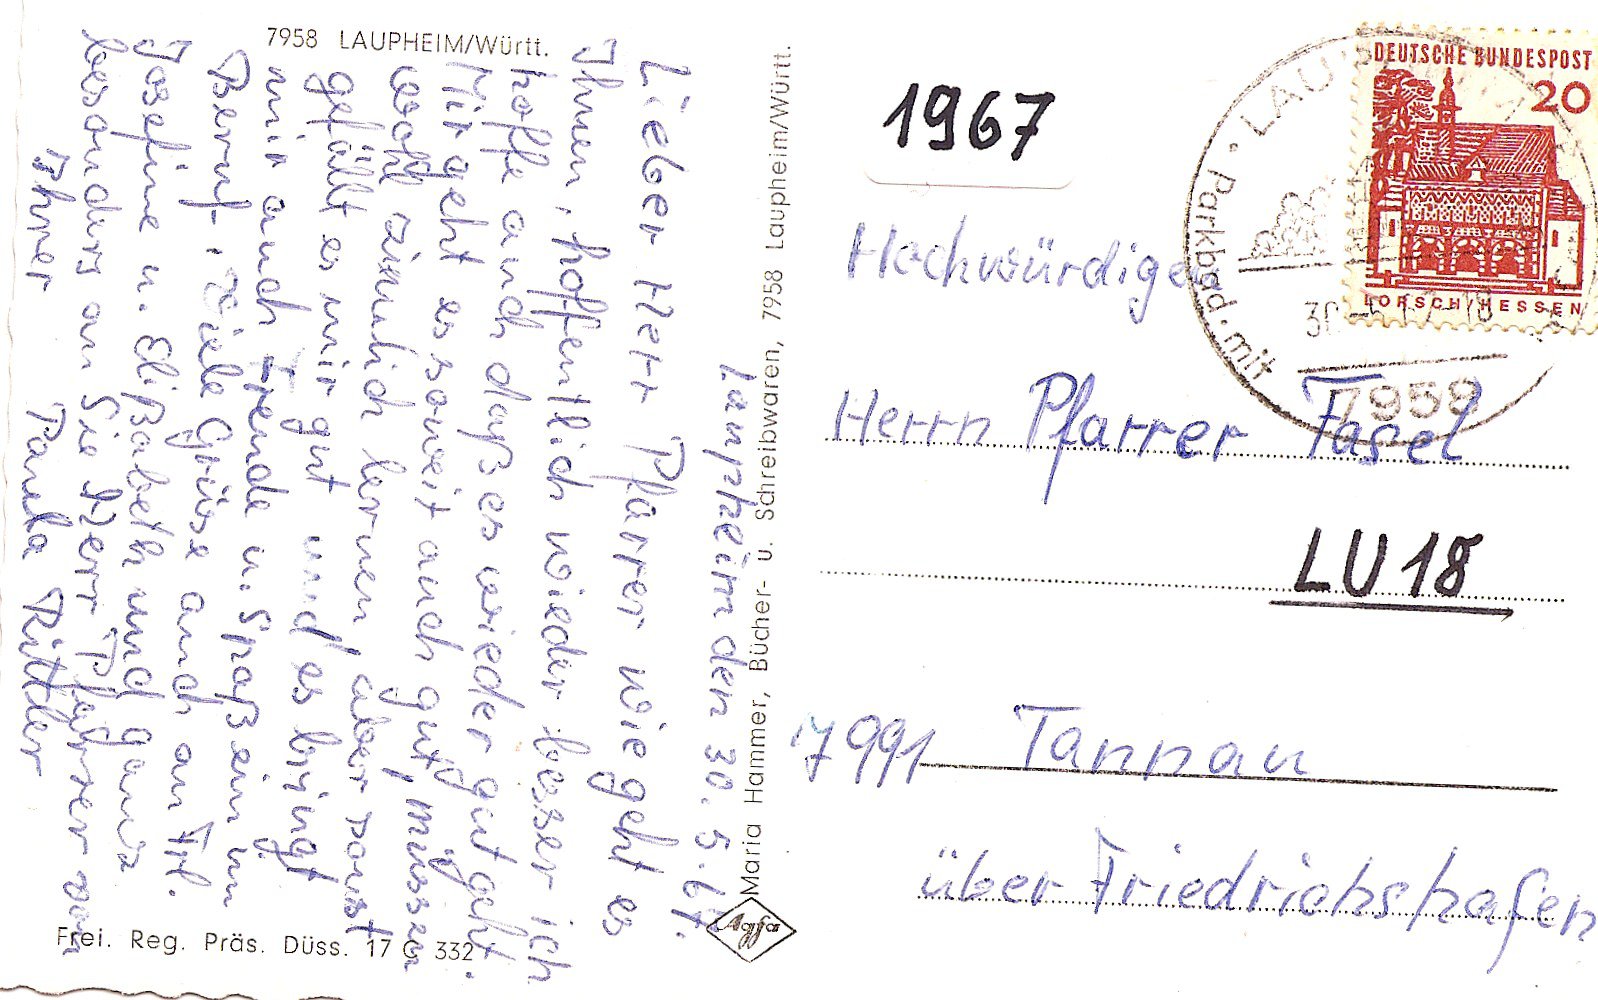 7958 LAUPHEIM/Württ.
Laupheim den 30.5.67.
Lieber Herr Pfarrer wie geht es
Ihnen, hoffentlich wieder besser ich
hoffe auch daß es wieder gut geht.
Mir geht es soweit auch gut, müssen
wohl ziemlich lernen aber sonst
gefällt es mir gut und es bringt
mir auch Freude u. Spaß ein im
Beruf. Viele Grüsse auch an Frl.
Josefine u. Elißabeth und ganz
besonders an Sie Herr Pfarrer von
Ihrer Paula Rittler
Frei. Reg. Präs. Düss. 17 G 332
Maria Hammer, Bücher- u. Schreibwaren, 7958 Laupheim/Württ.
Agfa
1967
DEUTSCHE BUNDESPOST
20
LORSCH/HESSEN
Parkbad · mit
7959
Hochwürdigen
Herrn Pfarrer Fasel
LU 18
7991 Tannau
über Friedrichshafen